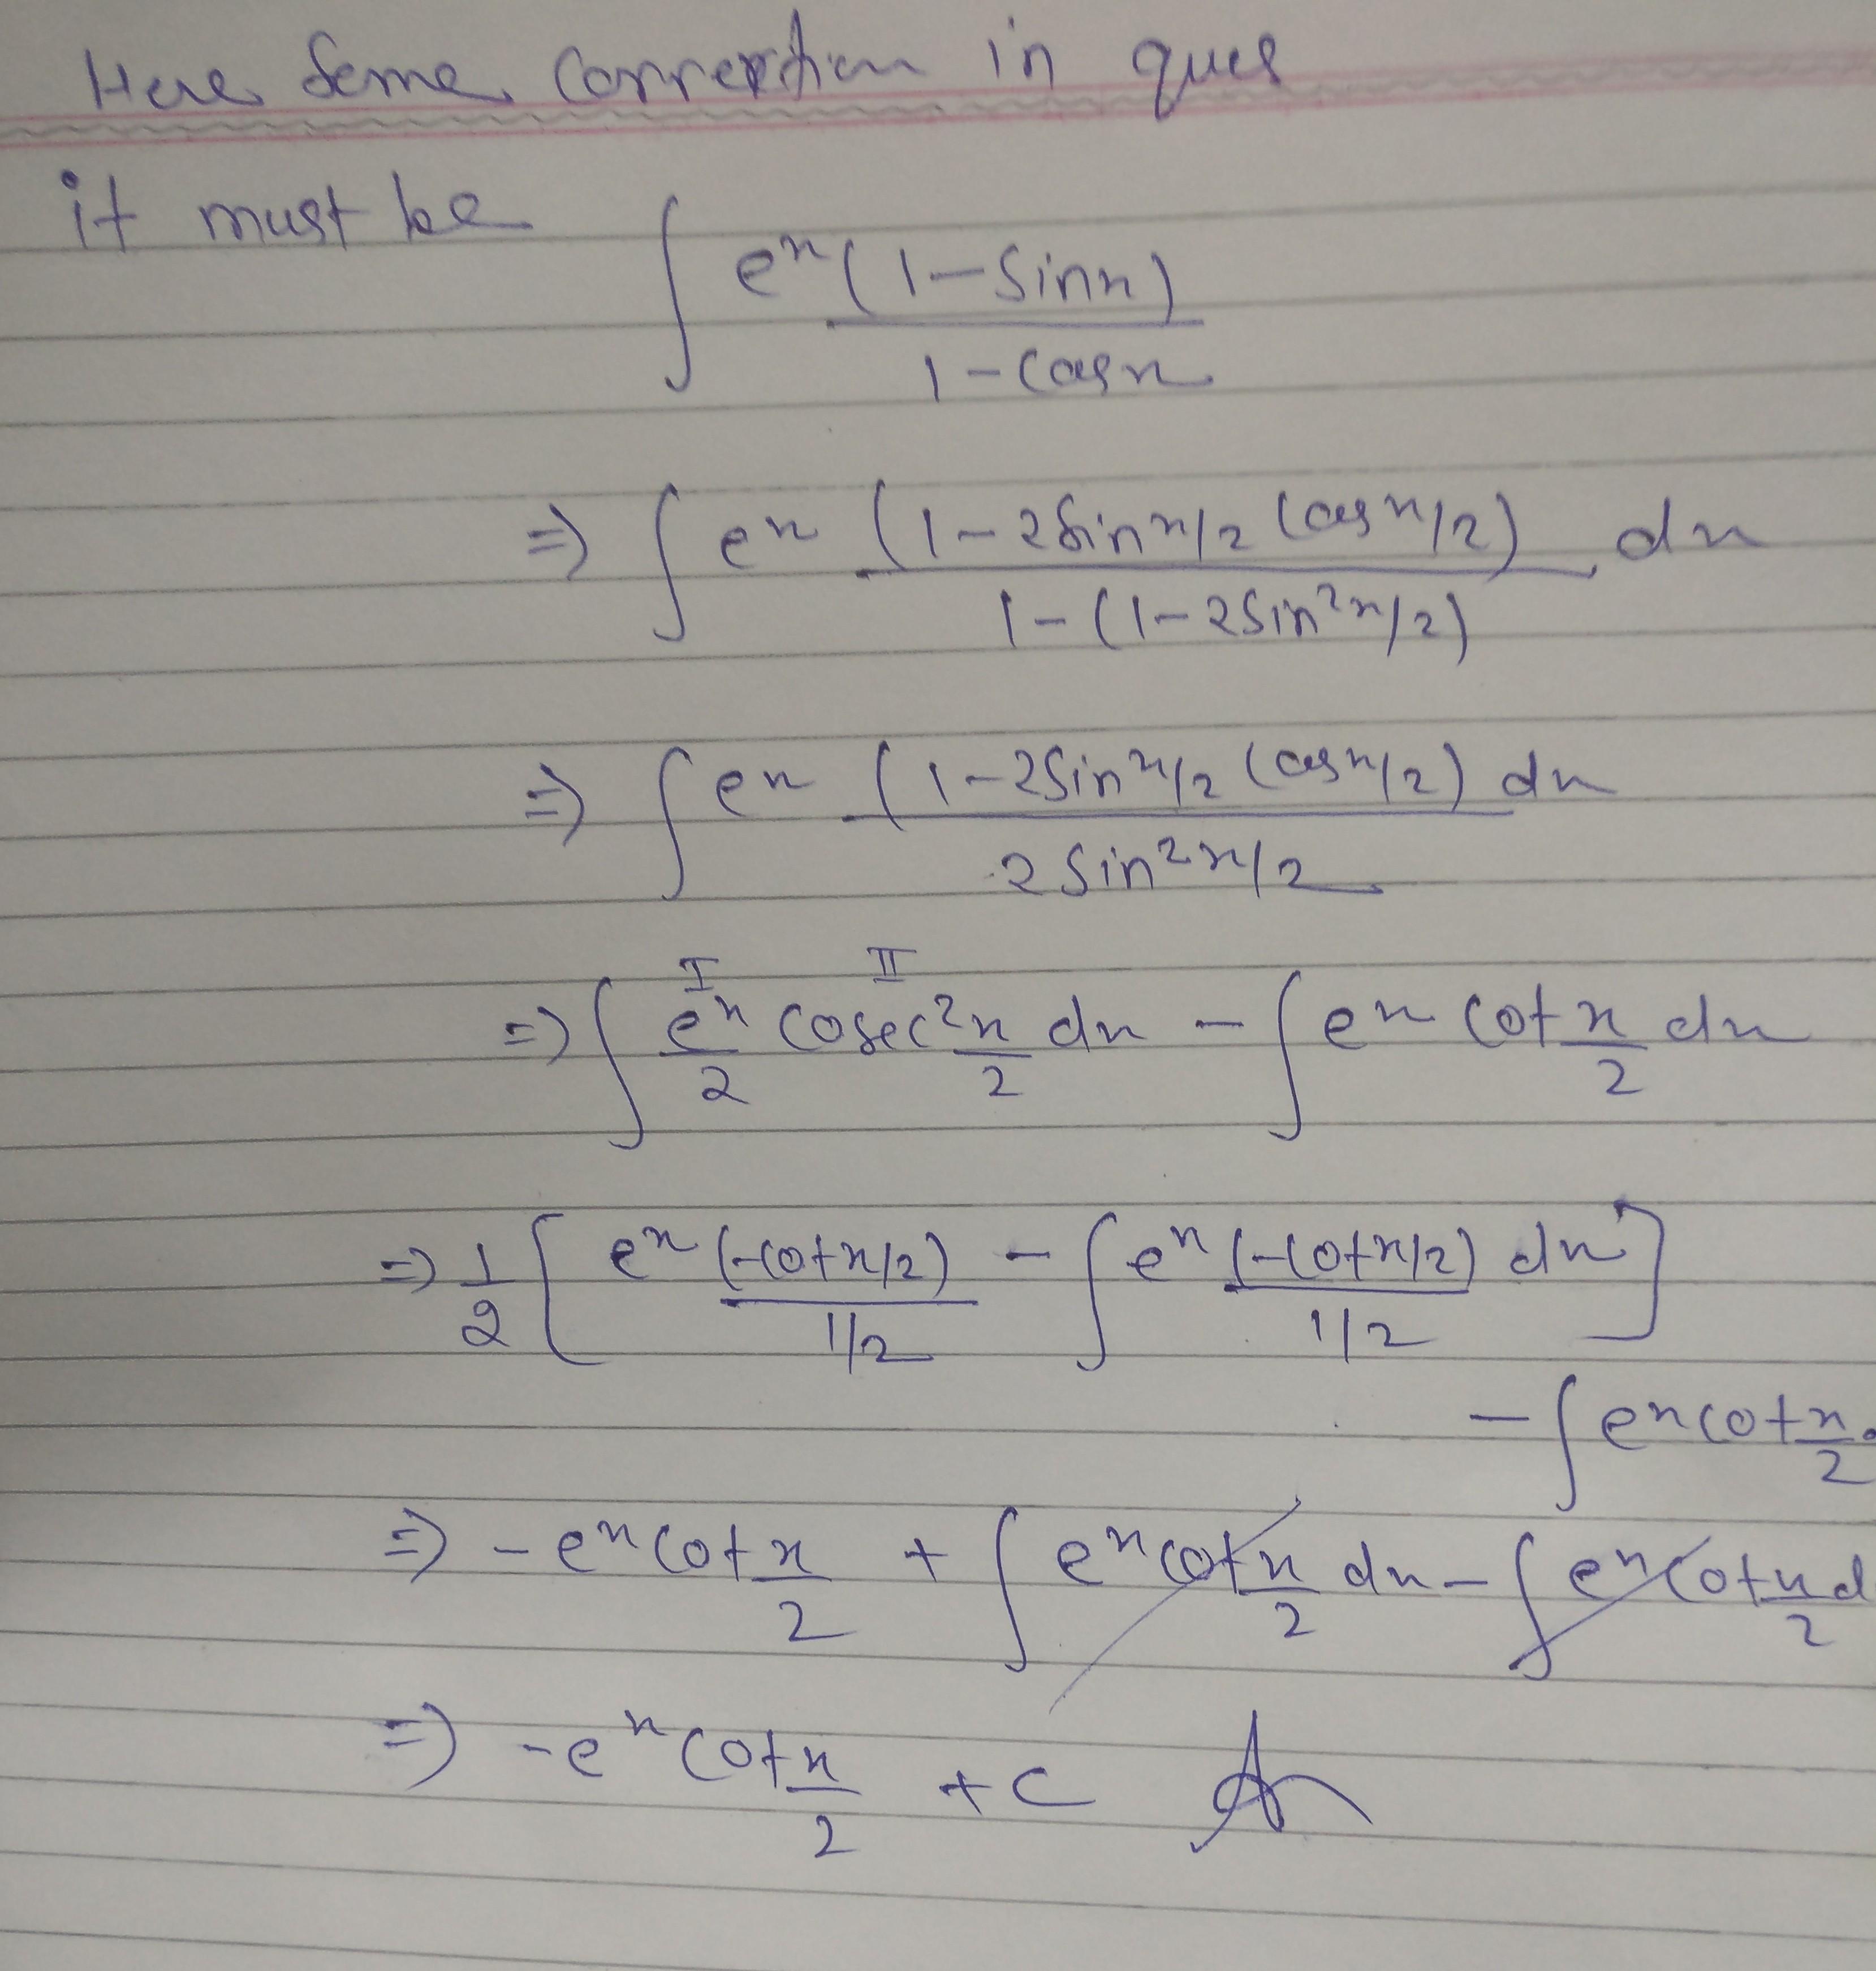 Here Some Correction in ques
it must be ∫ e^x (1 - Sinx) / 1 - Cosx
⇒ ∫ e^x (1 - 2Sin x/2 Cos x/2) / 1 - (1 - 2Sin² x/2) dx
⇒ ∫ e^x (1 - 2Sin x/2 Cos x/2) dx / 2Sin² x/2
I II
⇒ ∫ e^x/2 Cosec² x/2 dx - ∫ e^x Cot x/2 dx
⇒ 1/2 [ e^x (-Cot x/2) / 1/2 - ∫ e^x (-Cot x/2) / 1/2 dx ]
- ∫ e^x Cot x/2
⇒ - e^x Cot x/2 + ∫ e^x Cot x/2 dx - ∫ e^x Cot x/2 d
⇒ - e^x Cot x/2 + C A